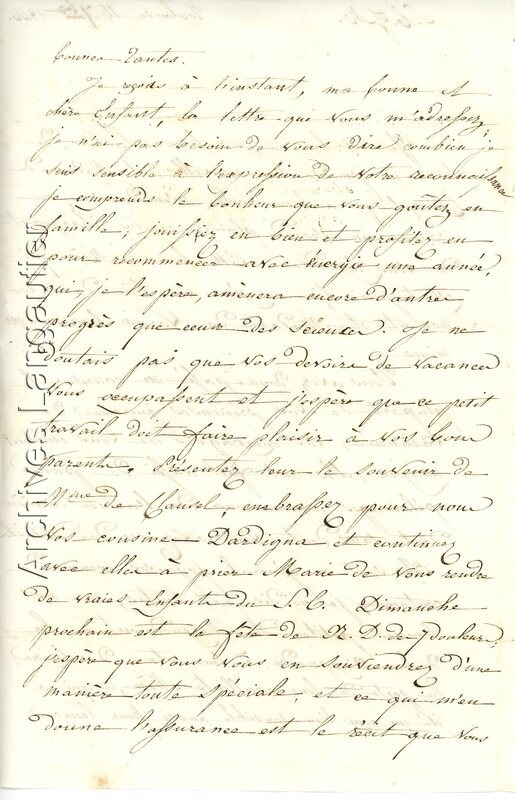 bonnes tantes.
Je reçois à l'instant, ma bonne et
chère Enfant, la lettre que vous m'adressez,
je n'ai pas besoin de vous dire combien je
suis sensible à l'expression de votre reconnaissance
je comprends le bonheur que vous goûtez en
famille, jouissez en bien et profitez en
pour recommencer avec énergie une année,
qui, je l'espère, amènera encore d'autres
progrès que ceux des sciences. Je ne
doutais pas que vos devoirs de vacances
vous occupassent et j'espère que ce petit
travail doit faire plaisir à vos bons
parents. Présentez leur le souvenir de
Mme de Clausel, embrassez pour nous
vos cousines Dardigna et continuez
avec elles à prier Marie de vous rendre
de vraies Enfants du S. C. Dimanche
prochain est la fête de N. D. de 7 douleurs;
j'espère que vous vous en souviendrez d'une
manière toute spéciale, et ce qui m'en
donne l'assurance est le récit que vous
Archives Langautier